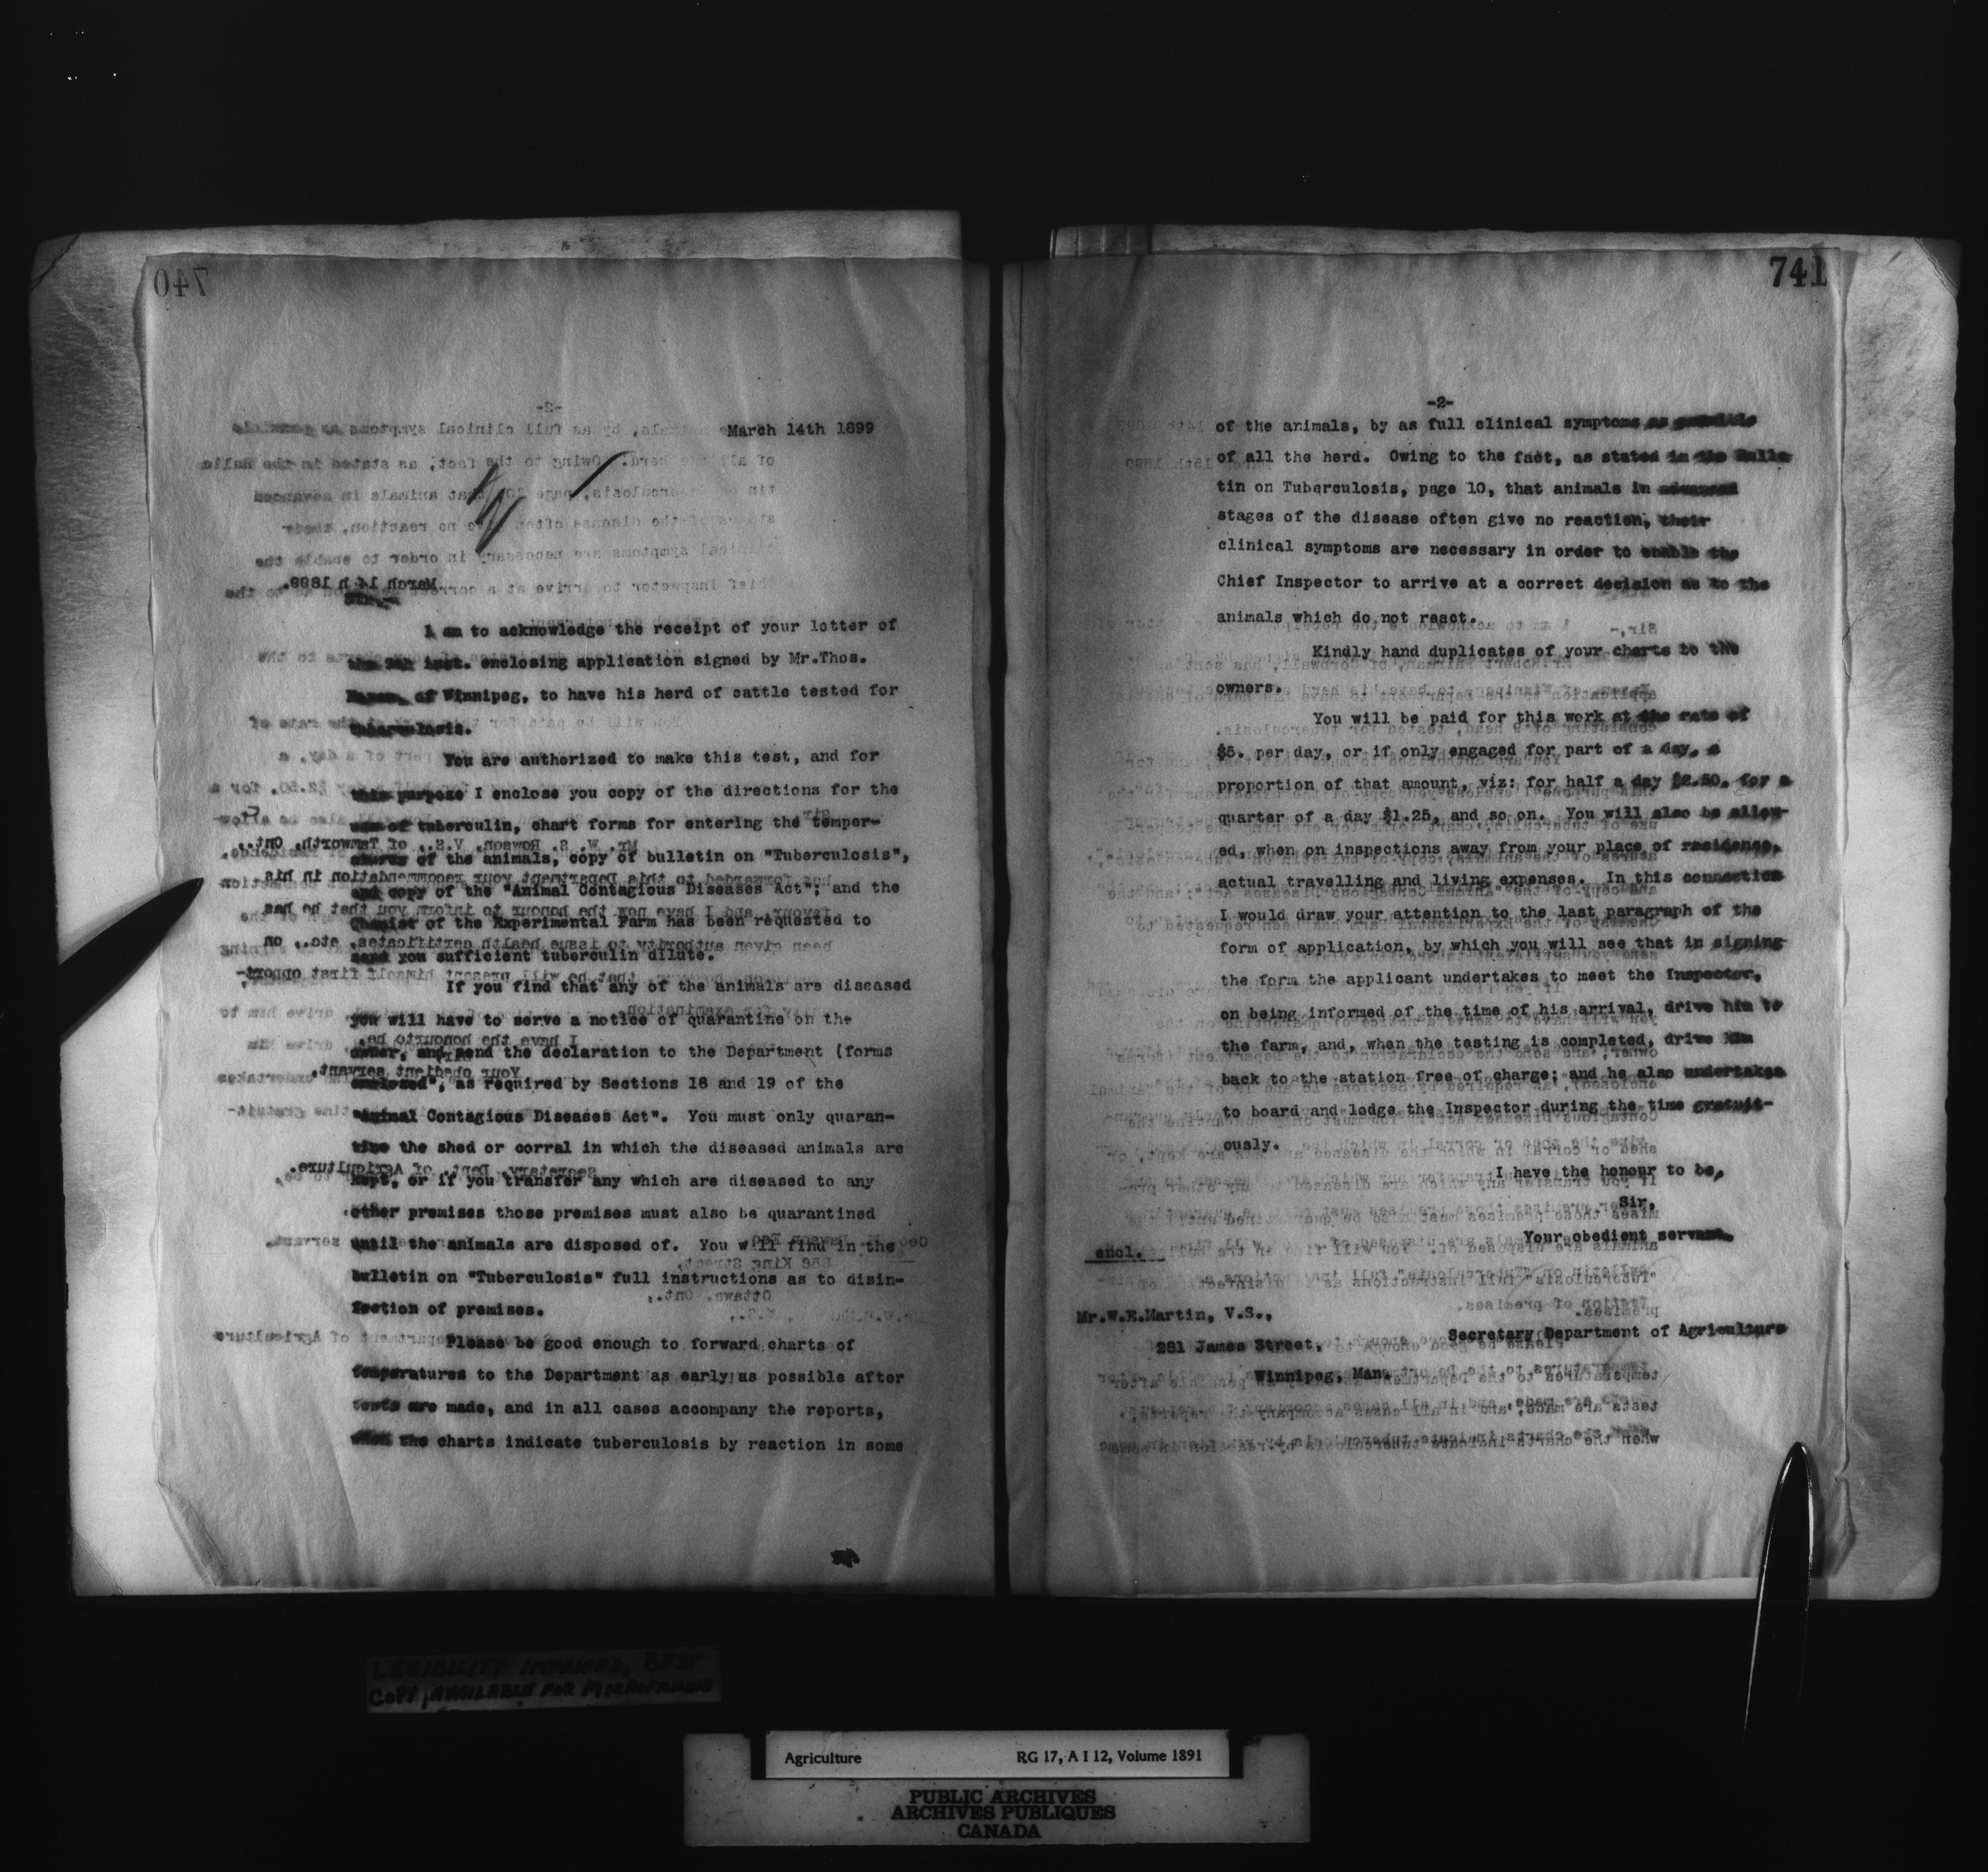 740
March 14th 1899
Sir,-
I am to acknowledge the receipt of your letter of
the inst. enclosing application signed by Mr.Thos.
of Winnipeg, to have his herd of cattle tested for
tuberculosis.
You are authorized to make this test, and for
this purpose I enclose you copy of the directions for the
use of tuberculin, chart forms for entering the temper-
atures of the animals, copy of bulletin on "Tuberculosis",
and copy of the "Animal Contagious Diseases Act"; and the
Chemist of the Experimental Farm has been requested to
send you sufficient tuberculin dilute.
If you find that any of the animals are diseased
you will have to serve a notice of quarantine on the
owner, and send the declaration to the Department (forms
enclosed", as required by Sections 18 and 19 of the
"Animal Contagious Diseases Act". You must only quaran-
tine the shed or corral in which the diseased animals are
kept, or if you transfer any which are diseased to any
other premises those premises must also be quarantined
until the animals are disposed of. You will find in the
bulletin on "Tuberculosis" full instructions as to disin-
fection of premises.
Please be good enough to forward charts of
temperatures to the Department as early as possible after
tests are made, and in all cases accompany the reports,
when the charts indicate tuberculosis by reaction in some
741
-2-
of the animals, by as full clinical symptoms as possible
of all the herd. Owing to the fact, as stated in the Bulle
tin on Tuberculosis, page 10, that animals in advanced
stages of the disease often give no reaction, their
clinical symptoms are necessary in order to enable the
Chief Inspector to arrive at a correct decision as to the
animals which do not react.
Kindly hand duplicates of your charts to the
owners.
You will be paid for this work at the rate of
$5. per day, or if only engaged for part of a day, a
proportion of that amount, viz: for half a day $2.50, for a
quarter of a day $1.25, and so on. You will also be allow-
ed, when on inspections away from your place of residence,
actual travelling and living expenses. In this connection
I would draw your attention to the last paragraph of the
form of application, by which you will see that in signing
the form the applicant undertakes to meet the Inspector,
on being informed of the time of his arrival, drive him to
the farm, and, when the testing is completed, drive him
back to the atation free of charge; and he also undertakes
to board and lodge the Inspector during the time gratuit-
ously.
I have the honour to be,
Sir,
Your obedient servant,
encl.
Mr.W.E.Martin, V.S.,
Secretary Department of Agriculture
281 James Street,
Winnipeg, Man.
LEGIBILITY IMPAIRED, BEST
COPY AVAILABLE FOR MICROFILMING
Agriculture RG 17, A I 12, Volume 1891
PUBLIC ARCHIVES
ARCHIVES PUBLIQUES
CANADA